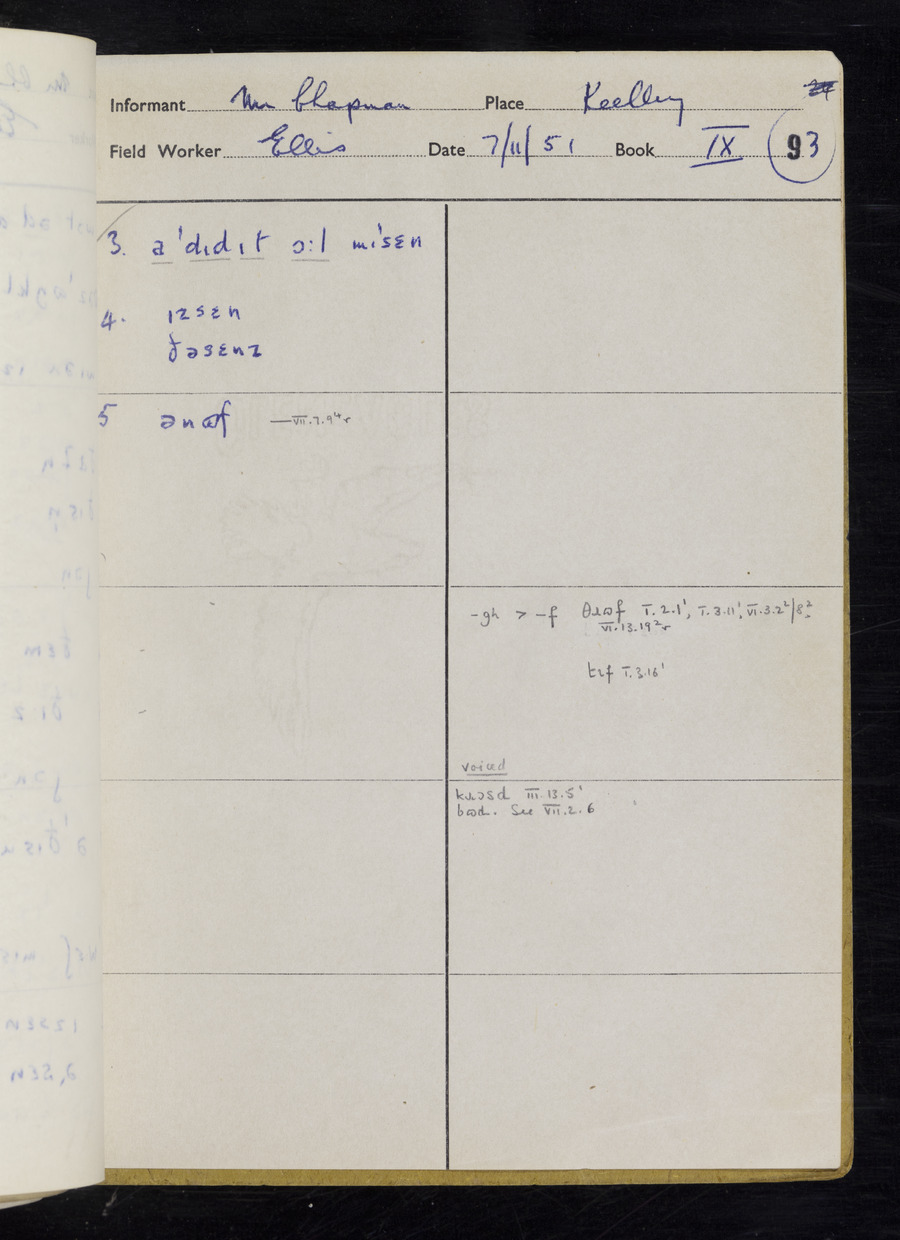 Informant Mr Chapman Place Keelby
Field Worker Ellis Date 7/11/51 Book IX 93
3. a ˈdɪdɪt ɔːl mɪˈsɛn
4. ɪzsɛn
ðəsɛnz
5 ənɷf —VII.7.9⁴r
-gh > -f θɹɷf I.2.1¹, I.3.11¹, VI.3.2²/8²,
VI.13.19²r
I.3.16¹
voiced
III.13.5¹
bɷd. See VII.2.6